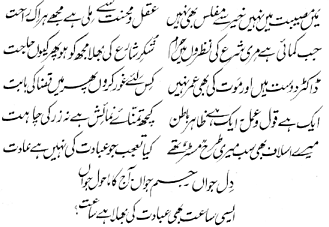 میں مصیبت میں نہیں خیر سے مفلس بھی نہیں عقل و محنت سے ملی ہے مجھے ہر اک راحت
جب کمائی ہے مری شرع کی نظروں میں حرام شکر شارع کی بھلا مجھ کو ہو پھر کیوں حاجت
ڈاکٹر دوست ہیں اور موت کی بھی عمر نہیں کس لئے غور کروں پھر میں قضا کی بابت
ایک ہے قول و عمل ایک ہے ظاہر باطن کچھ تمنائے نمائش ہے نہ زر کی چاہت
میرے اسلاف بھی سب میری طرح مسٹر تھے کیا تعجب جو عبادت کی نہیں ہے عادت
دل جواں جسم جواں آج کا ماحول جواں
ایسی ساعت بھی عبادت کی بھلا ہے ساعت؟